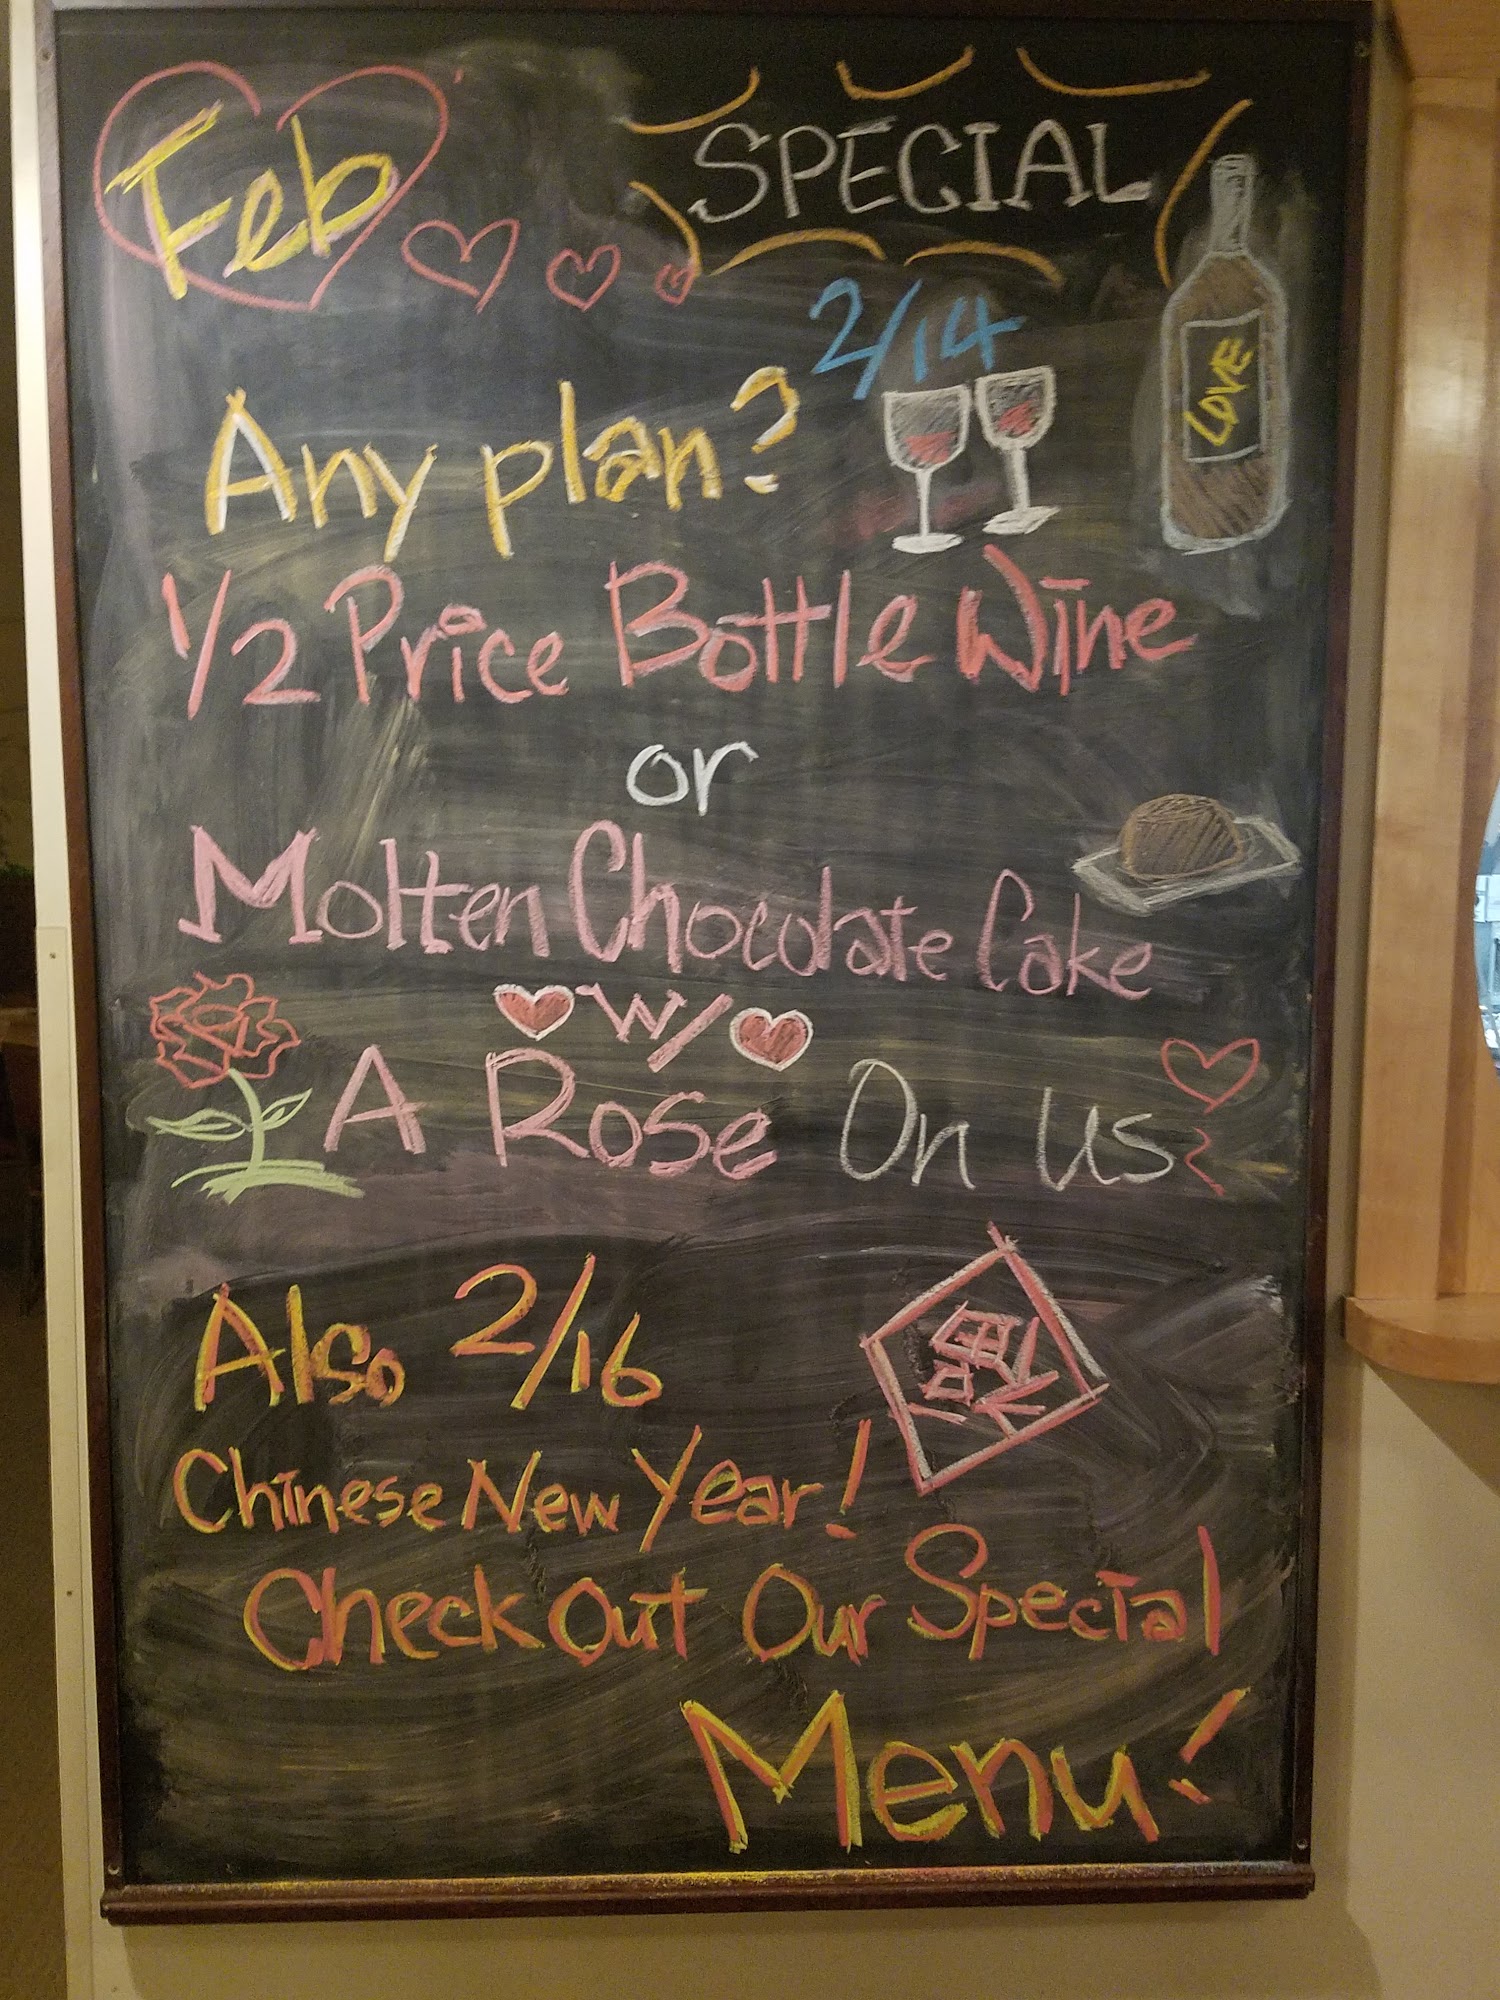 Feb
SPECIAL
2/14
LOVE
Any plan?
1/2 Price Bottle Wine
or
Molten Chocolate Cake
W/
A Rose On Us
Also 2/16
福
Chinese New Year!
Check Out Our Special
Menu!